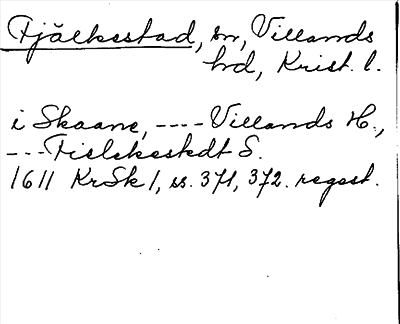 Fjälkestad, sn, Villands
hd, Krist. l.
i Skaane, ---- Villands H.,
--- Fielckestedt S.
1611 KrSk 1, ss. 371, 372. regest.